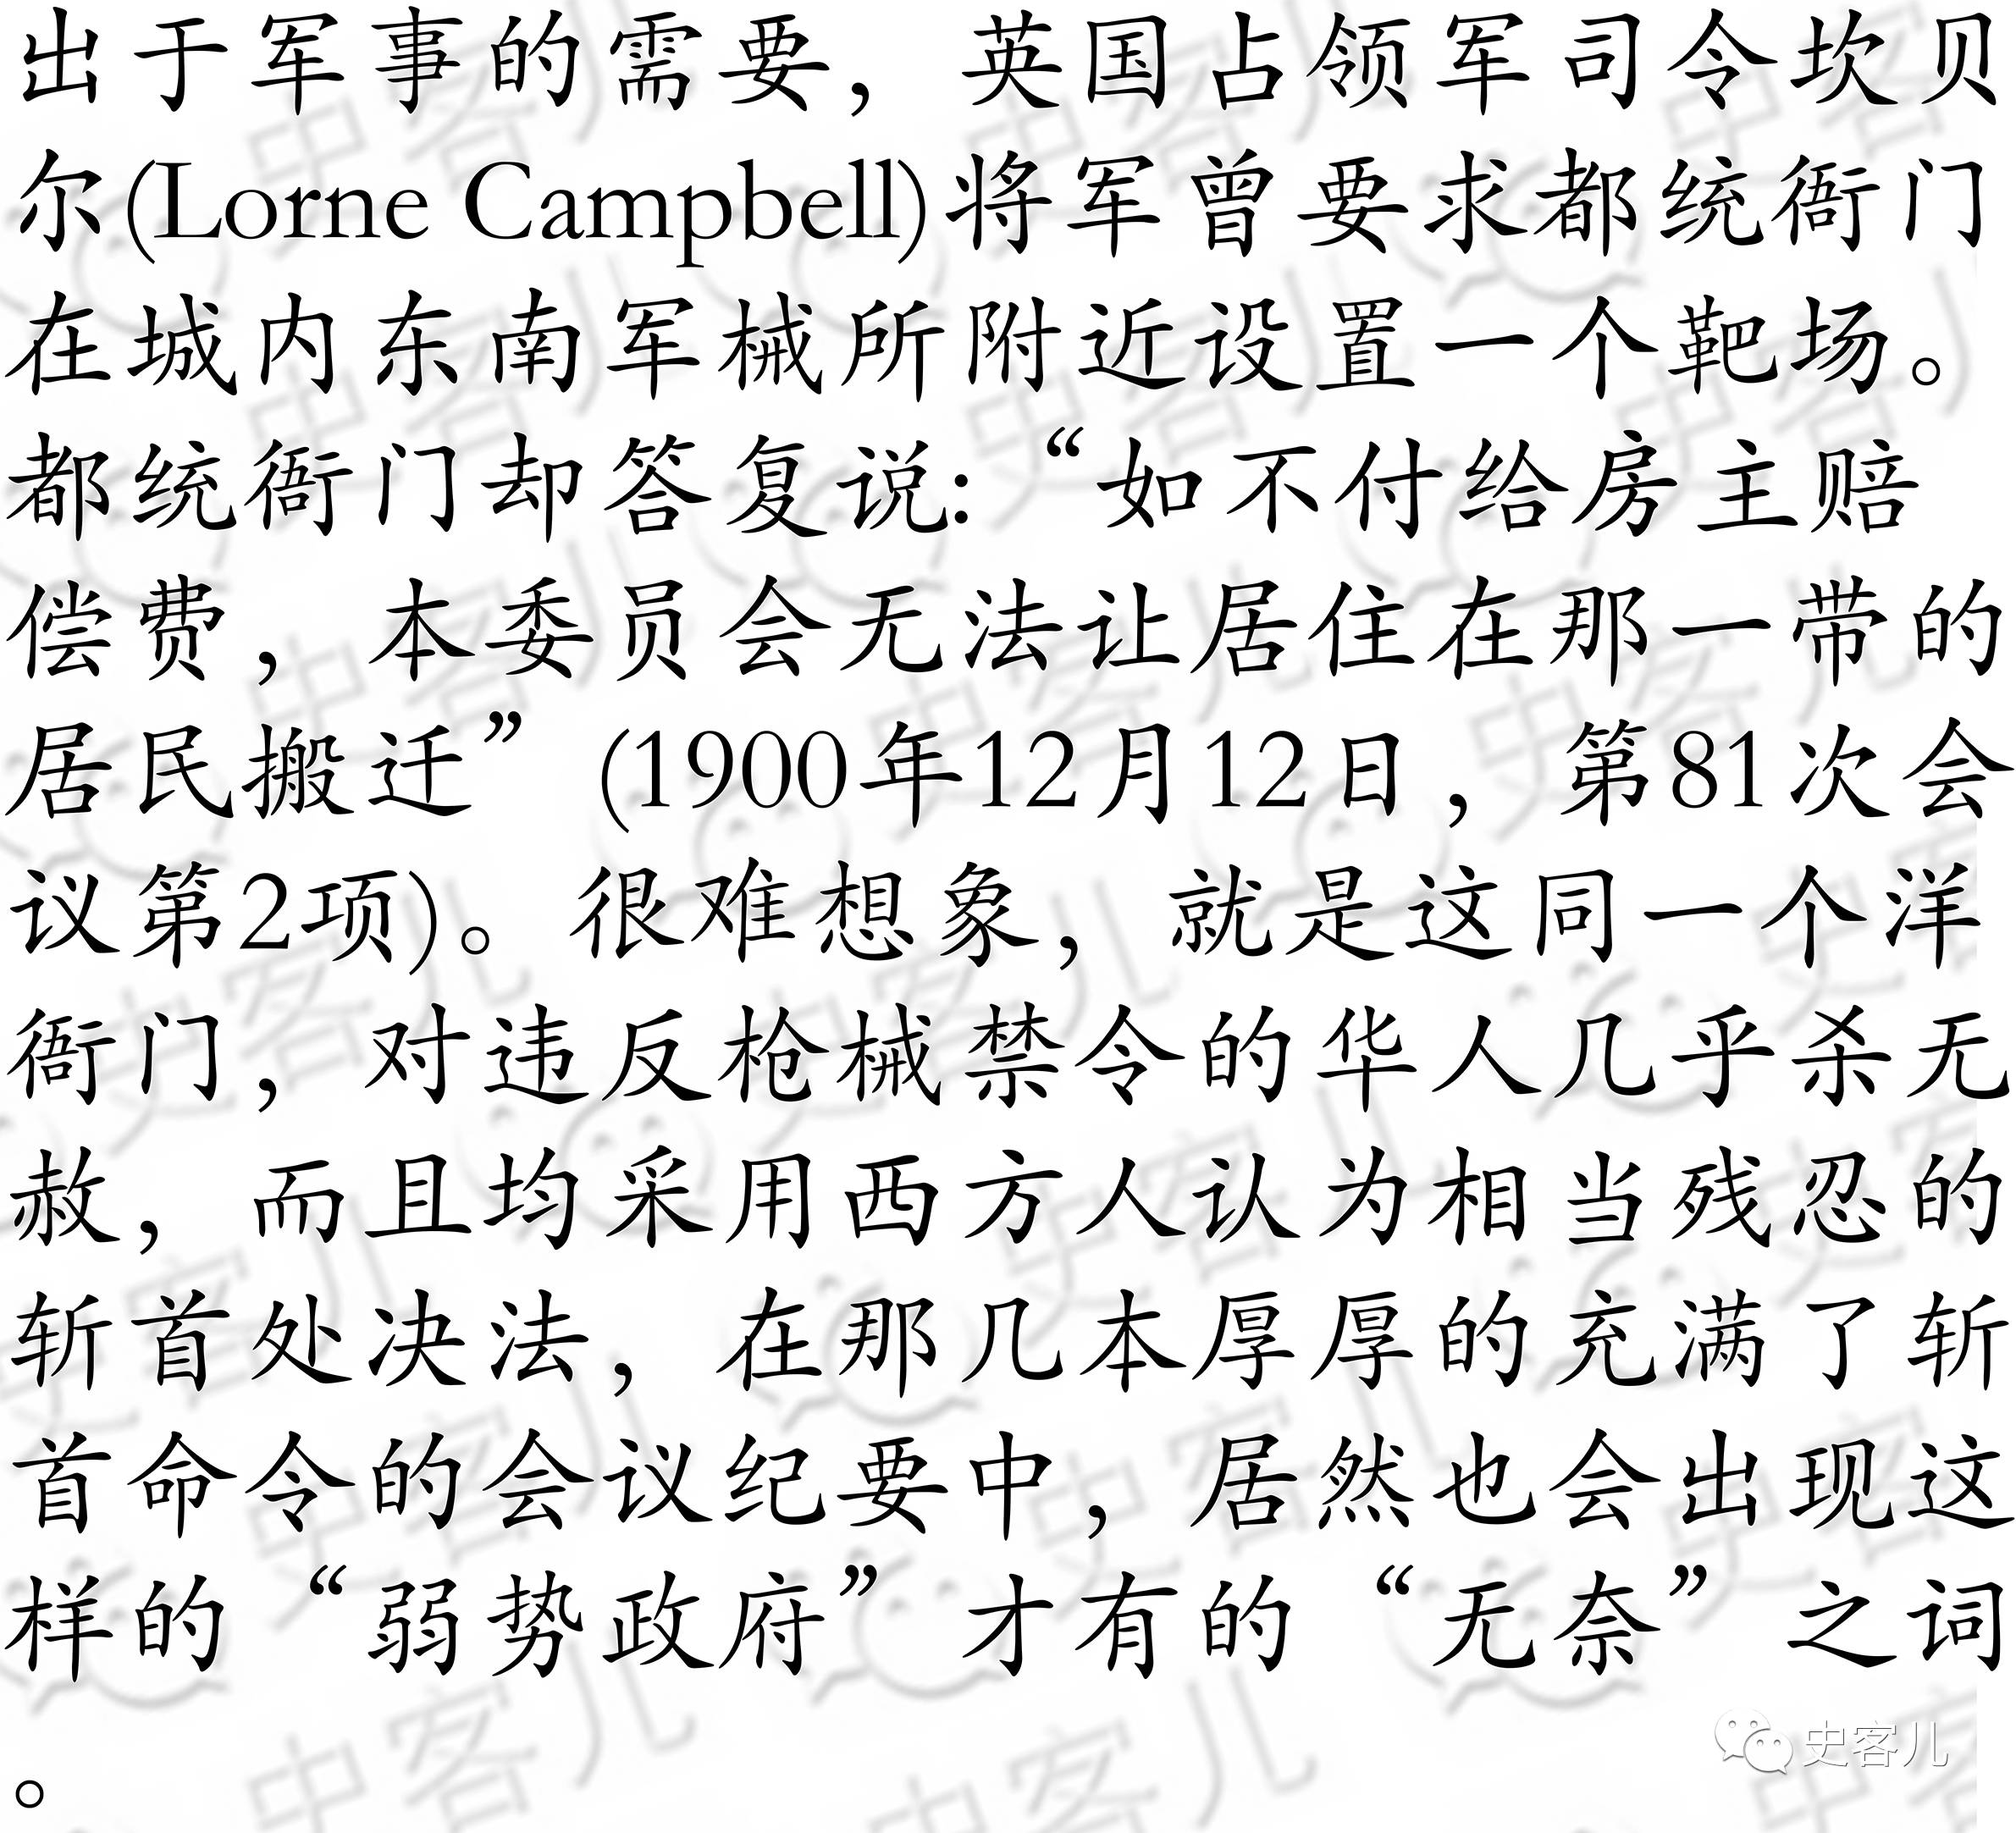 出于军事的需要，英国占领军司令坎贝
尔(Lorne Campbell)将军曾要求都统衙门
在城内东南军械所附近设置一个靶场。
都统衙门却答复说:“如不付给房主赔
偿费，本委员会无法让居住在那一带的
居民搬迁”(1900年12月12日，第81次会
议第2项)。很难想象，就是这同一个洋
衙门，对违反枪械禁令的华人几乎杀无
赦，而且均采用西方人认为相当残忍的
斩首处决法，在那几本厚厚的充满了斩
首命令的会议纪要中，居然也会出现这
样的“弱势政府”才有的“无奈”之词
。
史客儿